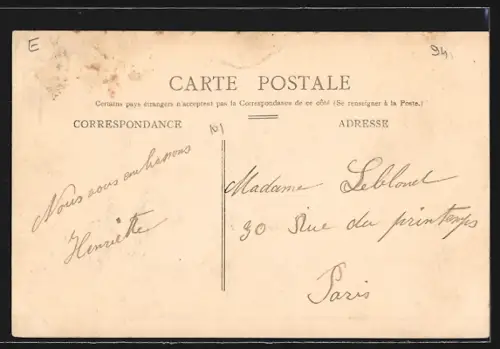 E
94.
CARTE POSTALE
Certains pays étrangers n'acceptent pas la Correspondance de ce côté (Se renseigner à la Poste.)
CORRESPONDANCE
ADRESSE
Nous vous embrassons
Henriette
Madame Leblond
30 Rue du printemps
Paris